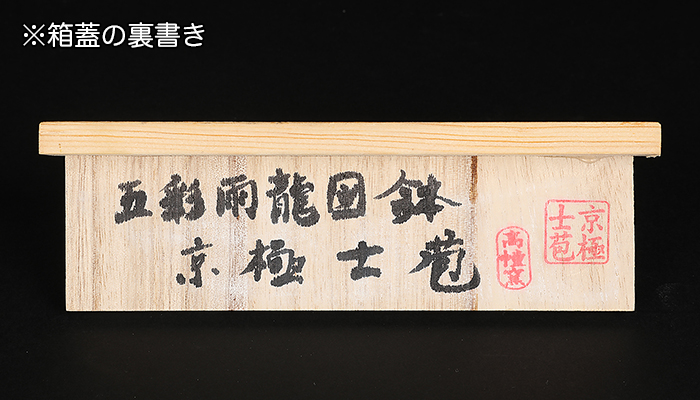 ※箱蓋の裏書き
五彩雨龍図鉢
京極士苞
京極士苞
高恒窯